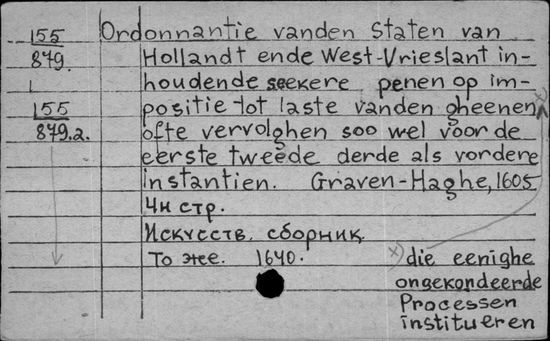 155 Ordonnantie vanden Staten van
879. Hollandt ende West-Vrieslant in-
houdende seekere penen op im-
155 positie tot laste vanden gheenen x)
879.2. ofte vervolghen soo wel voor de
eerste tweede derde als vordere
instantien. Graven-Haghe, 1605
4 нн стр.
Искусств. сборник.
То же. 1640. x) die eenighe
ongekondeerde
Processen
institueren